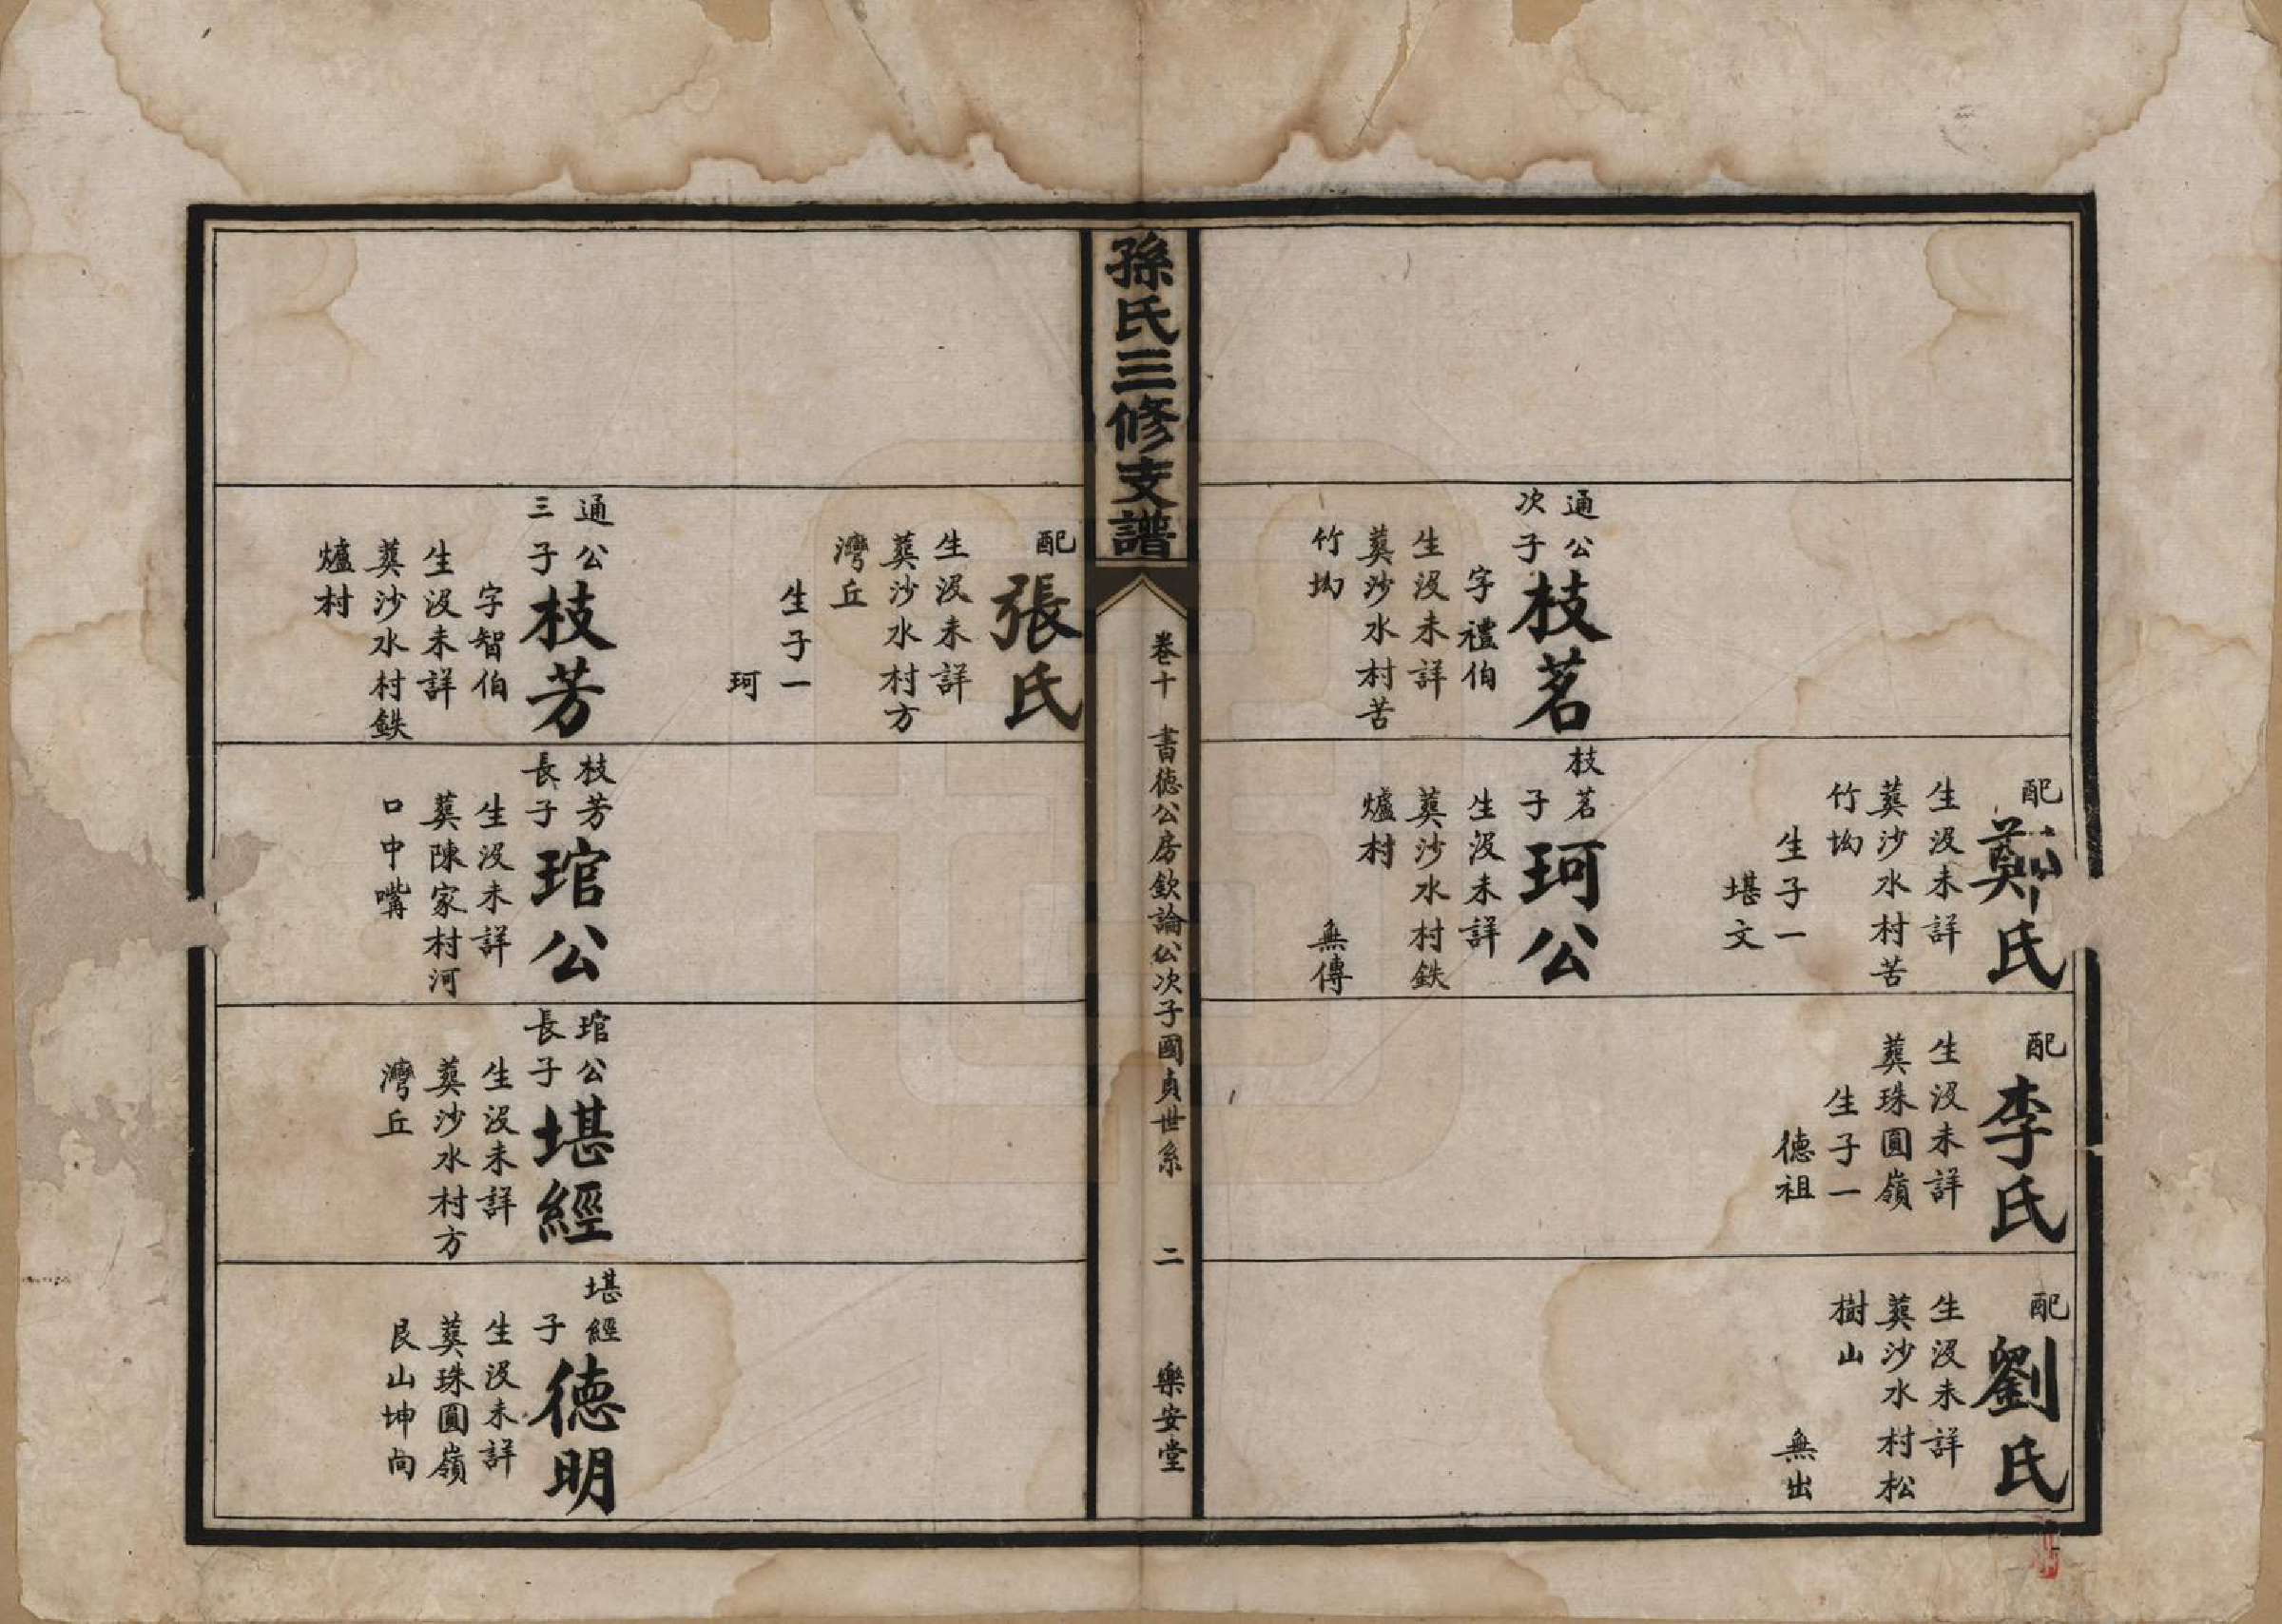 配
鄭氏
生没未詳
葬沙水村苦
竹坳
生子一
堪文
配
李氏
生没未詳
葬珠圓嶺
生子一
德祖
配
劉氏
生没未詳
葬沙水村松
樹山
無出
通公
次子
枝茗
字禮伯
生没未詳
葬沙水村苦
竹坳
枝茗
子
珂公
生没未詳
葬沙水村鉄
爐村
無傳
孫氏三修支譜
卷十
書德公房欽論公次子國貞世系
二
樂安堂
配
張氏
生没未詳
葬沙水村方
灣丘
生子一
珂
通公
三子
枝芳
字智伯
生没未詳
葬沙水村鉄
爐村
枝芳
長子
琯公
生没未詳
葬陳家村河
口中嘴
琯公
長子
堪經
生没未詳
葬沙水村方
灣丘
堪經
子
德明
生没未詳
葬珠圓嶺
艮山坤向